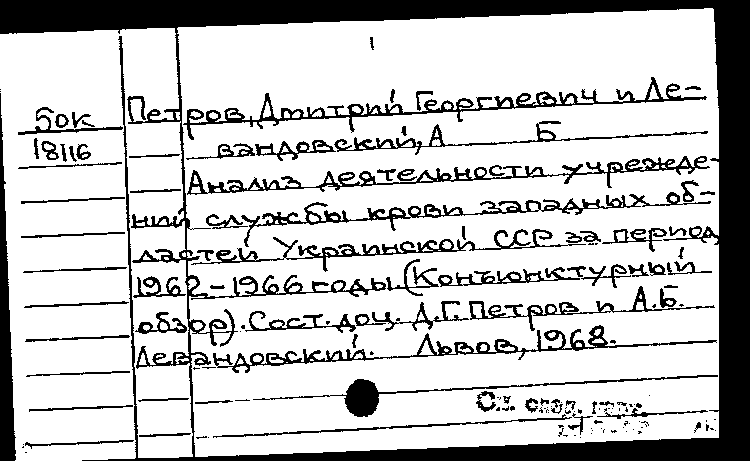 1
Петров, Дмитрий Георгиевич и Ле-
вандовский, А Б
50к
18116
Анализ деятельности учрежде-
ний службы крови западных об-
ластей Украинской ССР за период
1962-1966 годы. (Конъюнктурный
обзор). Сост. доц. Д.Г. Петров и А.Б.
Левандовский. Львов, 1968.
См. след.